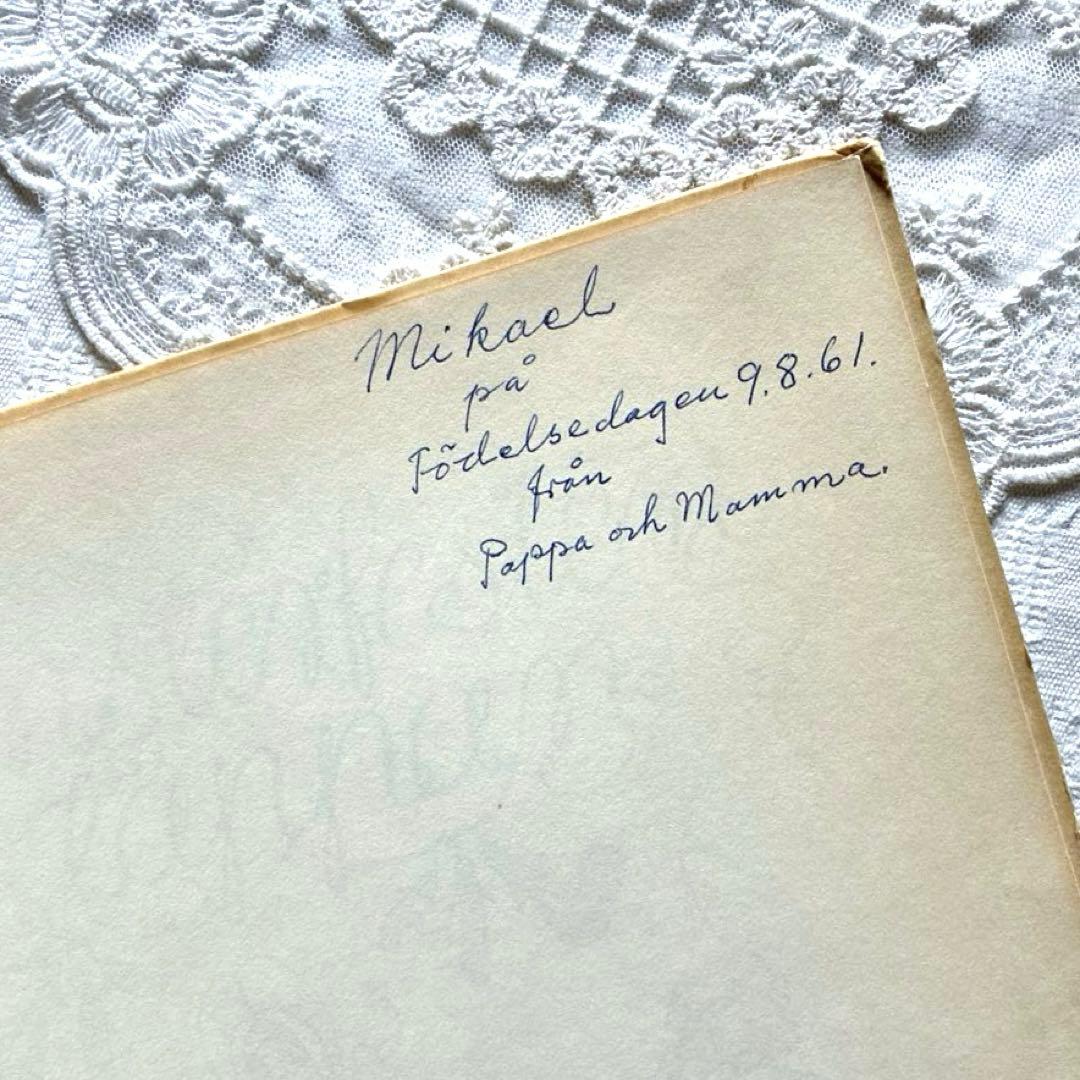 Mikael
på
Födelsedagen 9.8.61.
från
Pappa och Mamma.